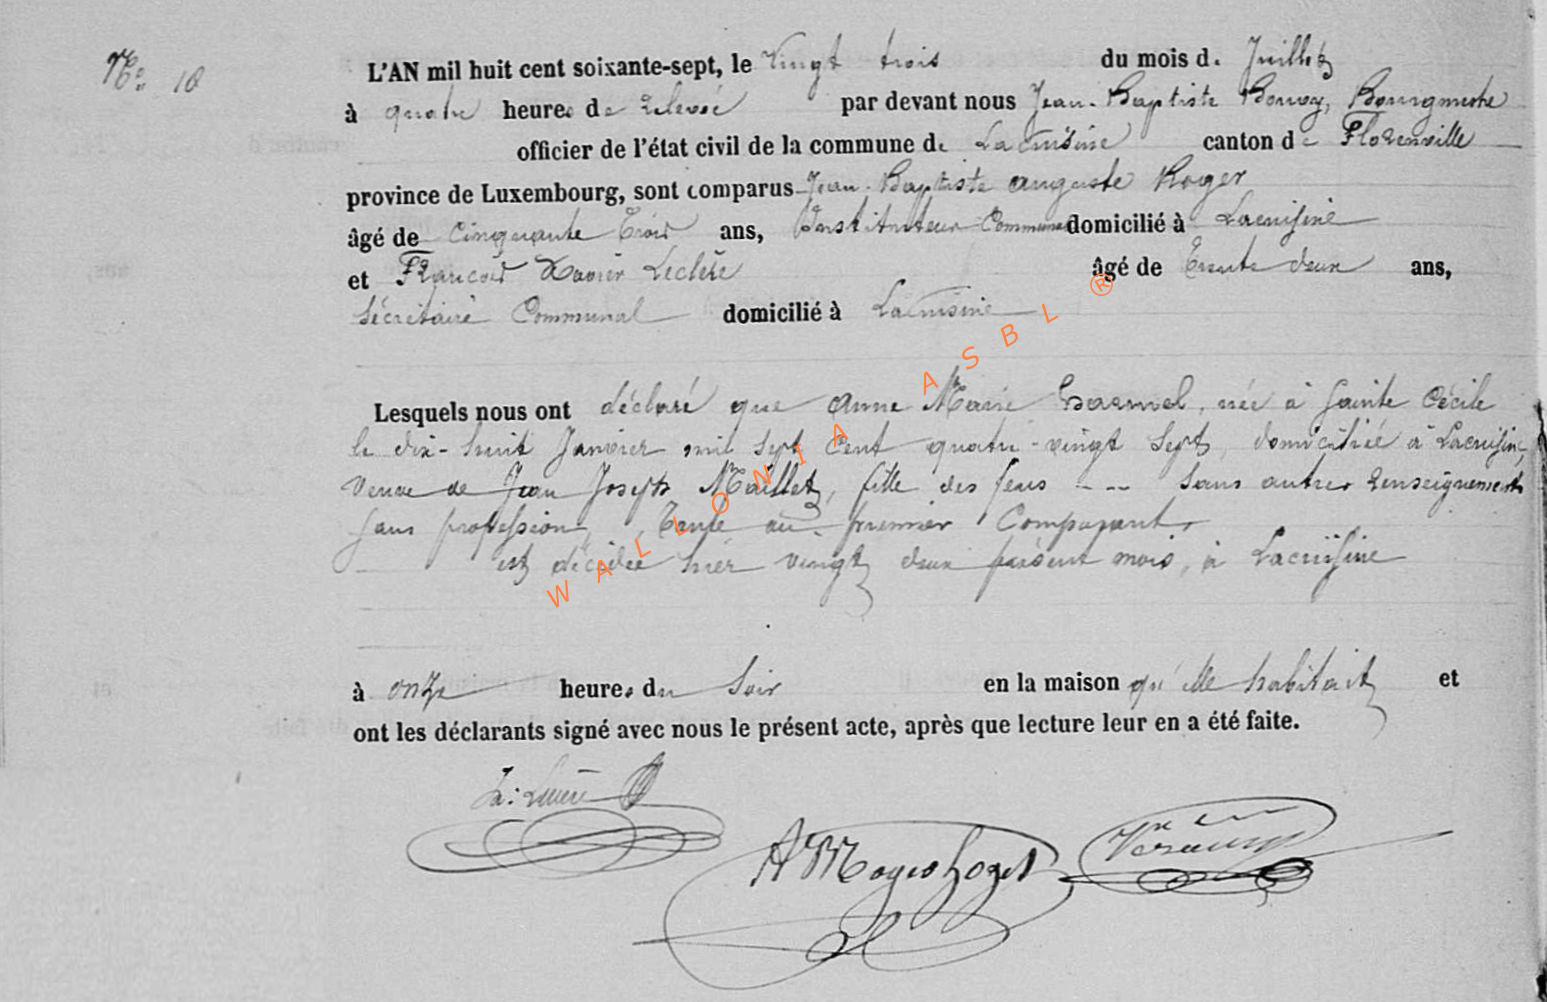 No 18
L'AN mil huit cent soixante-sept, le Vingt trois du mois de Juillet
à quatre heures de relevée par devant nous Jean-Baptiste Bourgmestre
officier de l'état civil de la commune de Lacuisine canton de Florenville
province de Luxembourg, sont comparus Jean-Baptiste Auguste Roger
âgé de Cinquante Trois ans, Instituteur Communal domicilié à Lacuisine
et François Xavier Leclère âgé de Trente deux ans,
Sécrétaire Communal domicilié à Lacuisine
Lesquels nous ont déclaré que Anne Marie née à Sainte Cécile
le dix-huit Janvier mil sept cent quatre-vingt sept, domiciliée à Lacuisine,
Veuve de Jean Joseph Maillet, fille des feus --- Sans autres renseignements
sans profession, Tante au premier Comparant
est décédée hier vingt deux présent mois, à Lacuisine
à onze heures du soir en la maison qu'elle habitait et
ont les déclarants signé avec nous le présent acte, après que lecture leur en a été faite.
WALLONIA ASBL ®